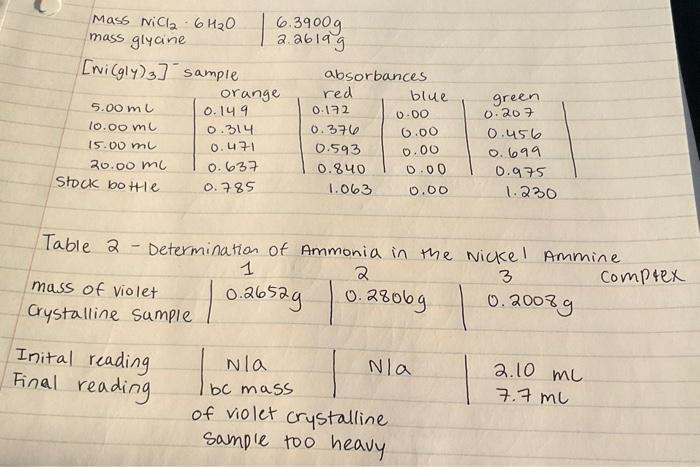 Mass NiCl2 · 6H2O 6.3900g
mass glycine 2.2619g
[Ni(gly)3]⁻ sample absorbances
orange red blue green
5.00 mL 0.149 0.172 0.00 0.207
10.00 mL 0.314 0.376 0.00 0.456
15.00 mL 0.471 0.593 0.00 0.699
20.00 mL 0.637 0.840 0.00 0.975
Stock bottle 0.785 1.063 0.00 1.230
Table 2 - Determination of Ammonia in the Nickel Ammine Complex
1 2 3
mass of violet 0.2652g 0.2806g 0.2008g
Crystalline Sample
Inital reading N/a N/a 2.10 mL
Final reading bc mass 7.7 mL
of violet crystalline
sample too heavy